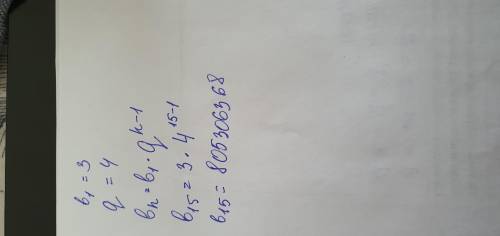 b₁ = 3
q = 4
bₙ = b₁ · qⁿ⁻¹
b₁₅ = 3 · 4¹⁵⁻¹
b₁₅ = 805306368